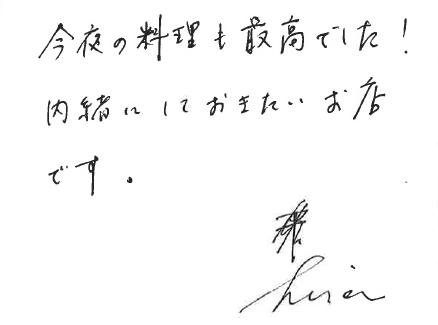 今夜の料理も最高でした!
内緒にしておきたいお店
です。